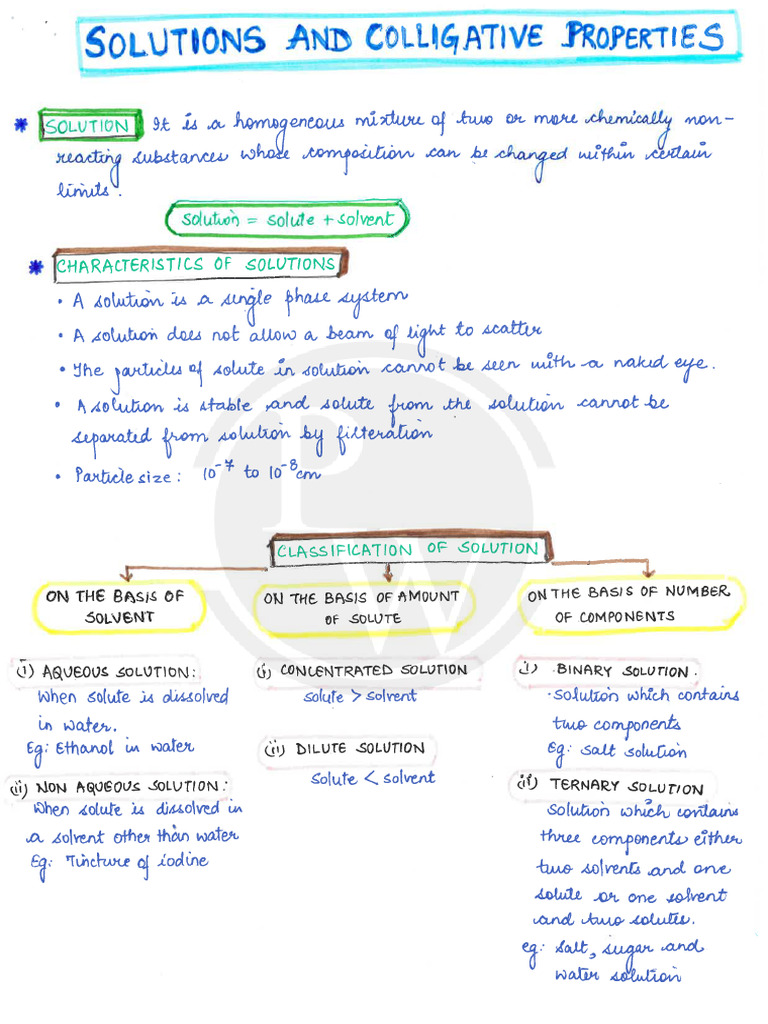 SOLUTIONS AND COLLIGATIVE PROPERTIES
* SOLUTION It is a homogeneous mixture of two or more chemically non-
reacting substances whose composition can be changed within certain
limits.
solution = solute + solvent
* CHARACTERISTICS OF SOLUTIONS
• A solution is a single phase system
• A solution does not allow a beam of light to scatter
• The particles of solute in solution cannot be seen with a naked eye.
• A solution is stable and solute from the solution cannot be
separated from solution by filteration
• Particle size: 10⁻⁷ to 10⁻⁸cm
PW
CLASSIFICATION OF SOLUTION
ON THE BASIS OF
SOLVENT
(i) AQUEOUS SOLUTION:
When solute is dissolved
in water.
Eg: Ethanol in water
(ii) NON AQUEOUS SOLUTION:
When solute is dissolved in
a solvent other than water
Eg: Tincture of iodine
ON THE BASIS OF AMOUNT
OF SOLUTE
(i) CONCENTRATED SOLUTION
solute > solvent
(ii) DILUTE SOLUTION
solute < solvent
ON THE BASIS OF NUMBER
OF COMPONENTS
(i) BINARY SOLUTION.
• Solution which contains
two components
Eg: salt solution
(ii) TERNARY SOLUTION
Solution which contains
three components either
two solvents and one
solute or one solvent
and two solutes.
eg: Salt, sugar and
water solution